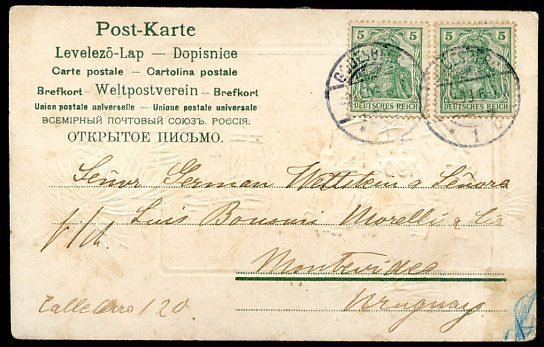 Post-Karte
Levelező-Lap — Dopisnice
Carte postale — Cartolina postale
Brefkort — Weltpostverein — Brefkort
Union postale universelle — Unione postale universale
ВСЕМІРНЫЙ ПОЧТОВЫЙ СОЮЗЪ. РОССІЯ.
ОТКРЫТОЕ ПИСЬМО.
5 5
DEUTSCHES REICH
5 5
DEUTSCHES REICH
Señor German Wettstein e Señora
Luis Bonomi Morelli & Cia
Montevideo
Uruguay
Calle 120.